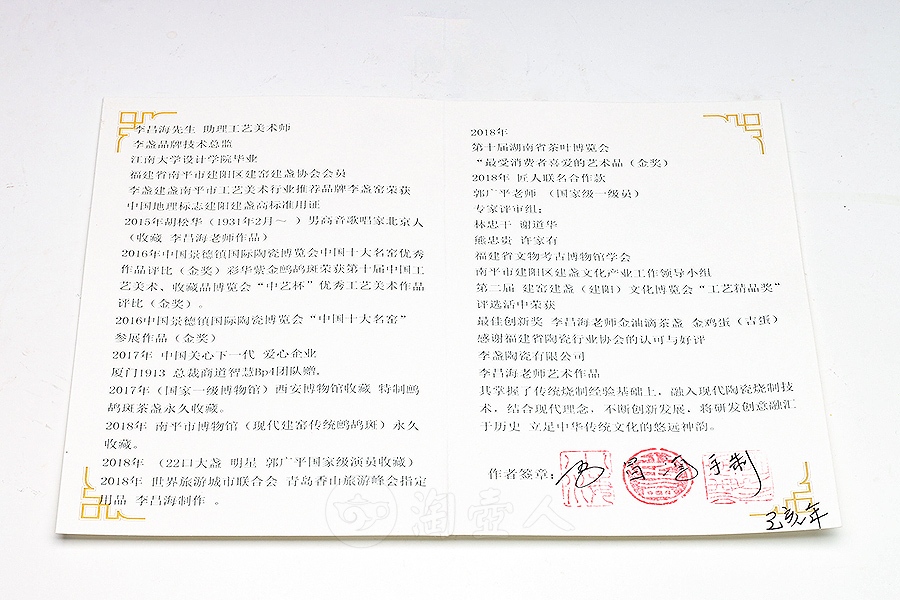 李昌海先生 助理工艺美术师
李盏品牌技术总监
江南大学设计学院毕业
福建省南平市建阳区建窑建盏协会会员
李盏建盏南平市工艺美术行业推荐品牌李盏窑荣获
中国地理标志建阳建盏高标准用证
2015年胡松华（1931年2月～ ）男高音歌唱家北京人
（收藏 李昌海老师作品）
2016年中国景德镇国际陶瓷博览会中国十大名窑优秀
作品评比（金奖）彩华紫金鹧鸪斑荣获第十届中国工
艺美术、收藏品博览会“中艺杯”优秀工艺美术作品
评比（金奖）。
2016中国景德镇国际陶瓷博览会“中国十大名窑”
参展作品（金奖）
2017年 中国关心下一代 爱心企业
厦门1913 总裁商道智慧Bp4团队赠.
2017年（国家一级博物馆）西安博物馆收藏 特制鹧
鸪斑茶盏永久收藏。
2018年 南平市博物馆（现代建窑传统鹧鸪斑）永久
收藏。
2018年 （22口大盏 明星 郭广平国家级演员收藏）
2018年 世界旅游城市联合会 青岛香山旅游峰会指定
用品 李昌海制作 。
2018年
第十届湖南省茶叶博览会
“最受消费者喜爱的艺术品（金奖）
2018年 匠人联名合作款
郭广平老师 （国家级一级员）
专家评审组：
林忠干 谢道华
熊忠贵 许家有
福建省文物考古博物馆学会
南平市建阳区建盏文化产业工作领导小组
第二届 建窑建盏（建阳）文化博览会“工艺精品奖”
评选活中荣获
最佳创新奖 李昌海老师金油滴茶盏 金鸡蛋（吉蛋）
感谢福建省陶瓷行业协会的认可与好评
李盏陶瓷有限公司
李昌海老师艺术作品
其掌握了传统烧制经验基础上，融入现代陶瓷烧制技
术，结合现代理念，不断创新发展，将研发创意融汇
于历史 立足中华传统文化的悠远神韵。
作者签章：
手制
己亥年
淘壶人